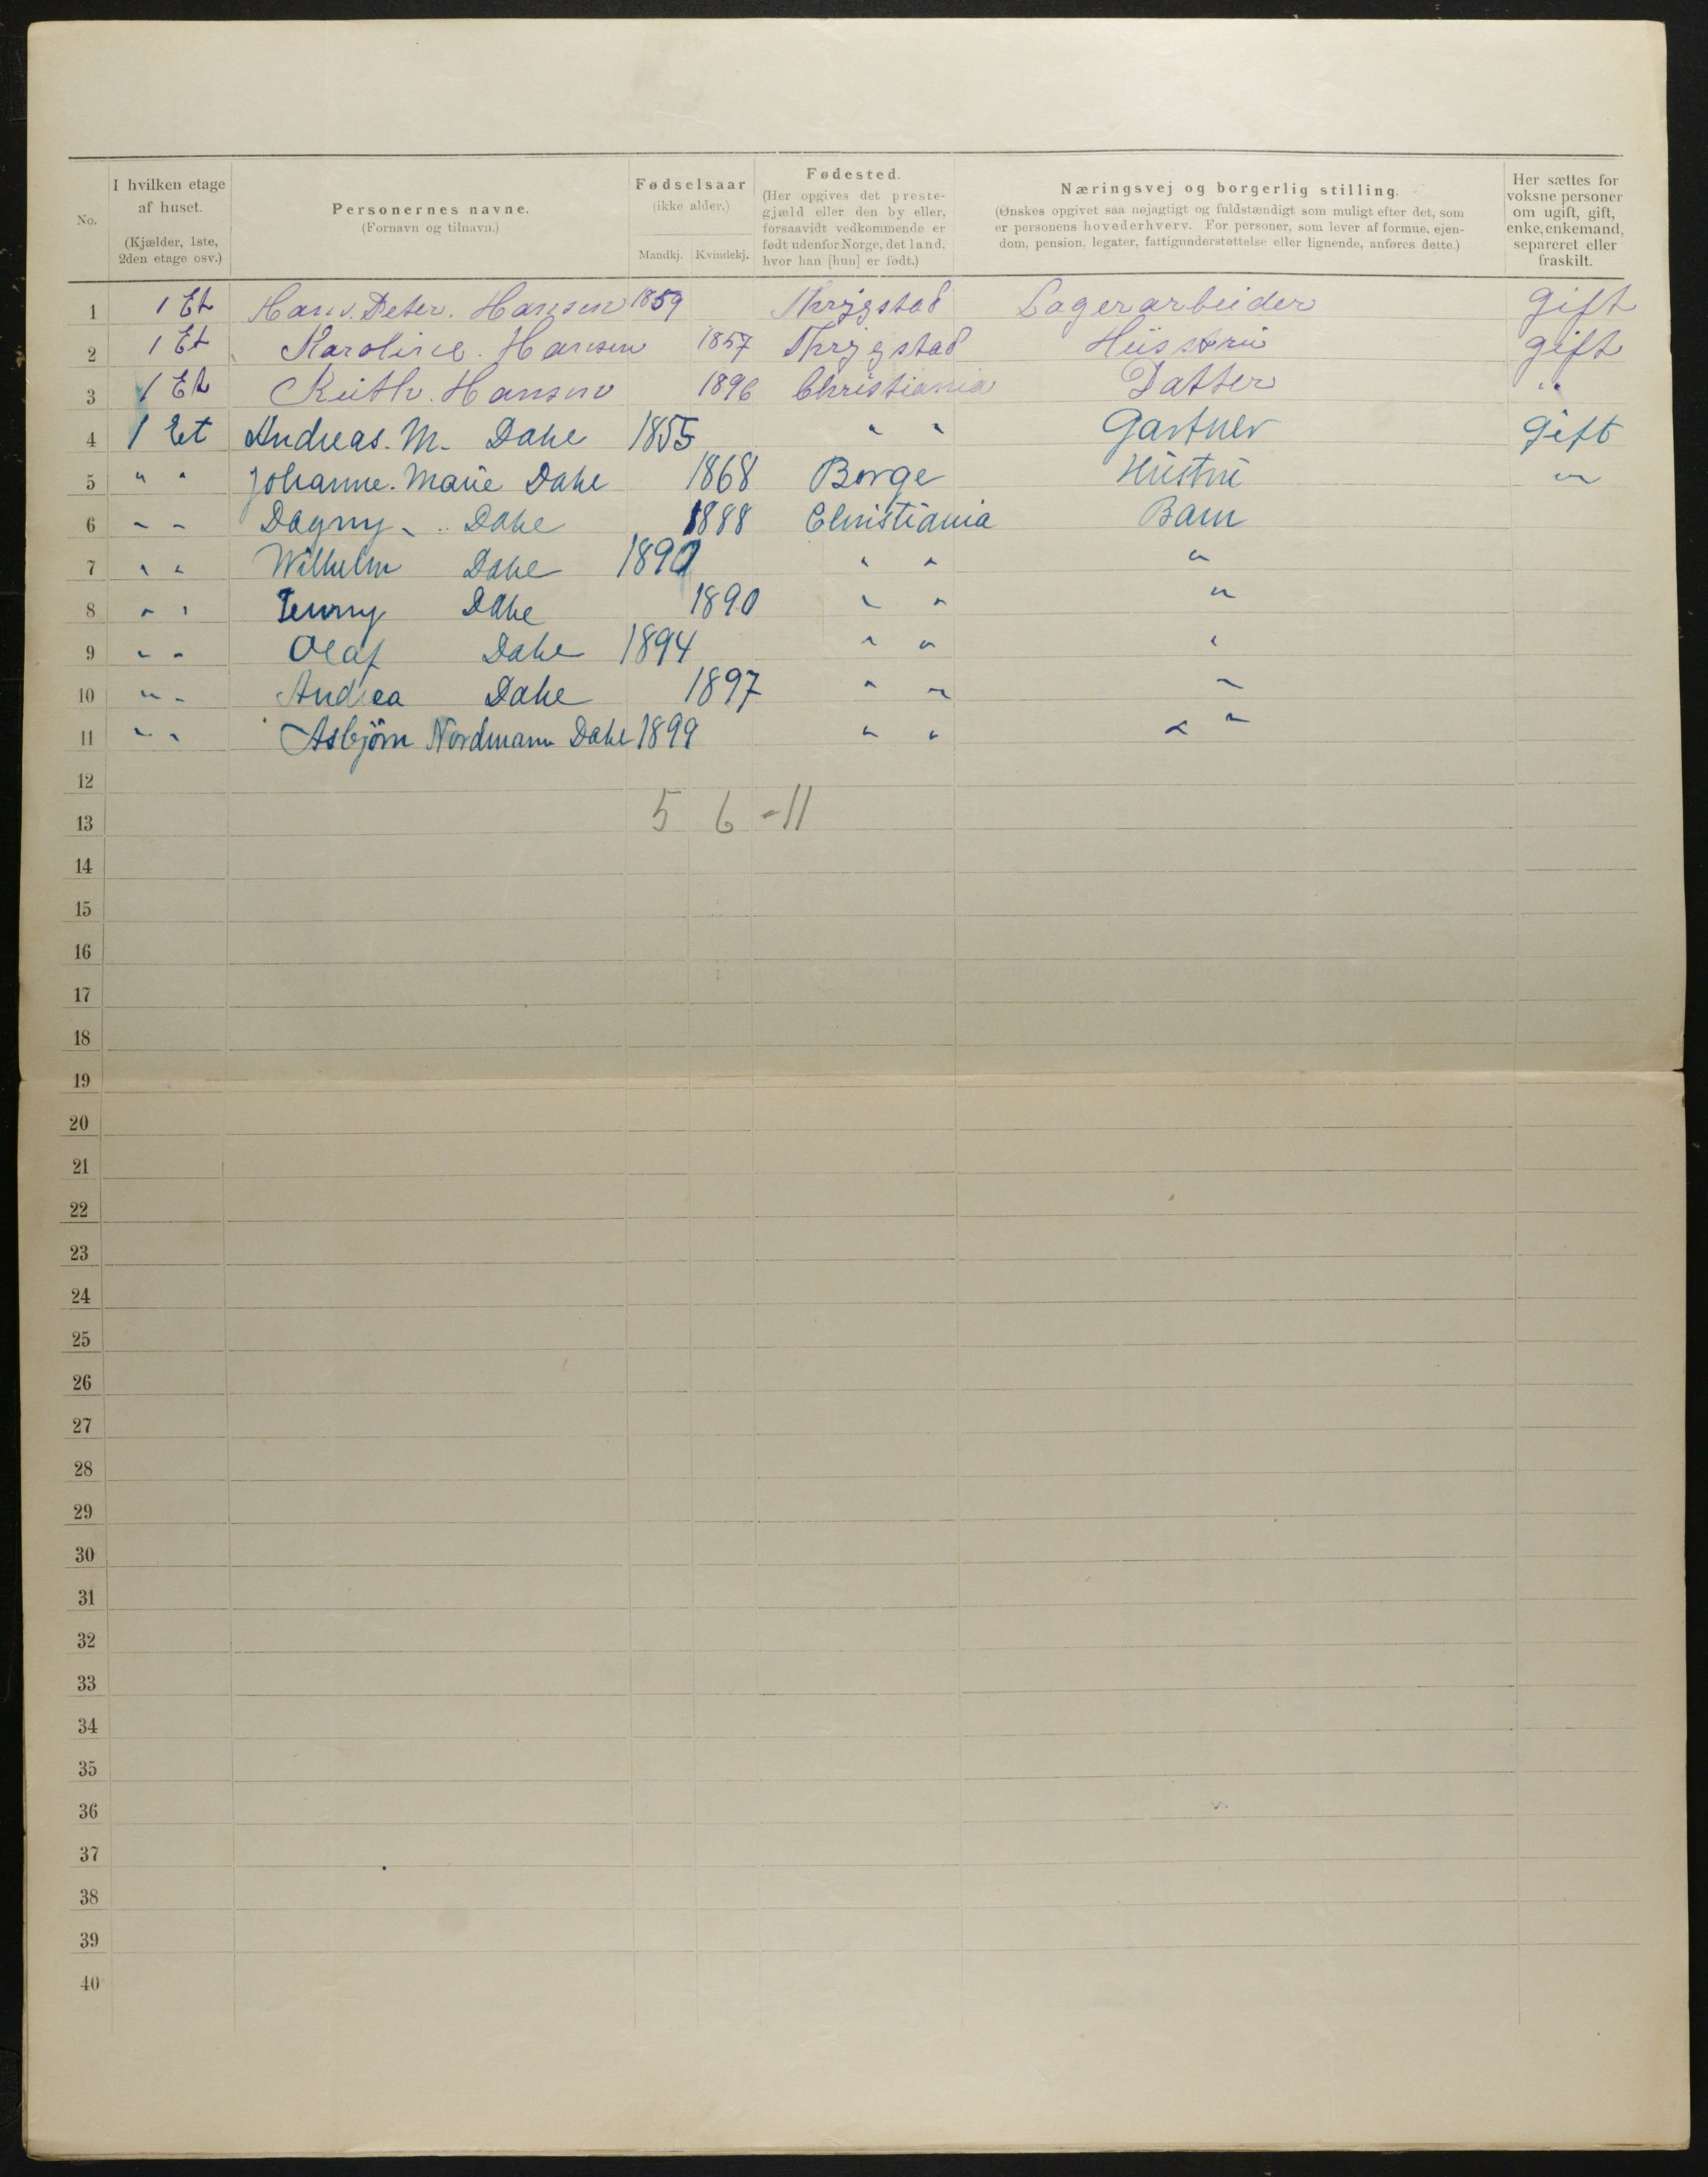 No.
I hvilken etage af huset. (Kjælder, 1ste, 2den etage osv.)
Personernes navne. (Fornavn og tilnavn.)
Fødselsaar (ikke alder.)
Mandkj. Kvindekj.
Fødested. (Her opgives det prestegjæld eller den by eller, forsaavidt vedkommende er født udenfor Norge, det land, hvor han [hun] er født.)
Næringsvej og borgerlig stilling.
(Ønskes opgivet saa nøjagtigt og fuldstændigt som muligt efter det, som er personens hovederhverv. For personer, som lever af formue, ejendom, pension, legater, fattigunderstøttelse eller lignende, anføres dette.)
Her sættes for voksne personer om ugift, gift, enke, enkemand, separeret eller fraskilt.
1 1 Et Hans. Peter. Hansen 1859 Thrygstad Lagerarbeider gift
2 1 Et Karoline. Hansen 1857 Thrygstad Hüsstrü gift
3 1 Et Rüth. Hansen 1896 Christiania Datter "
4 1 Et Andreas. M. Dahe 1855 " " Gartner Gift
5 " " Johanne. Marie Dahe 1868 Borge Hüstrü "
6 " " Dagny " Dahe 1888 Christiania Barn
7 " " Wilhelm Dahe 1890 " " "
8 " " Jenny Dahe 1890 " " "
9 " " Olaf Dahe 1894 " " "
10 " " Andrea Dahe 1897 " " "
11 " " Asbjørn Nordmann Dahe 1899 " " " "
12
5 6 - 11
13
14
15
16
17
18
19
20
21
22
23
24
25
26
27
28
29
30
31
32
33
34
35
36
37
38
39
40